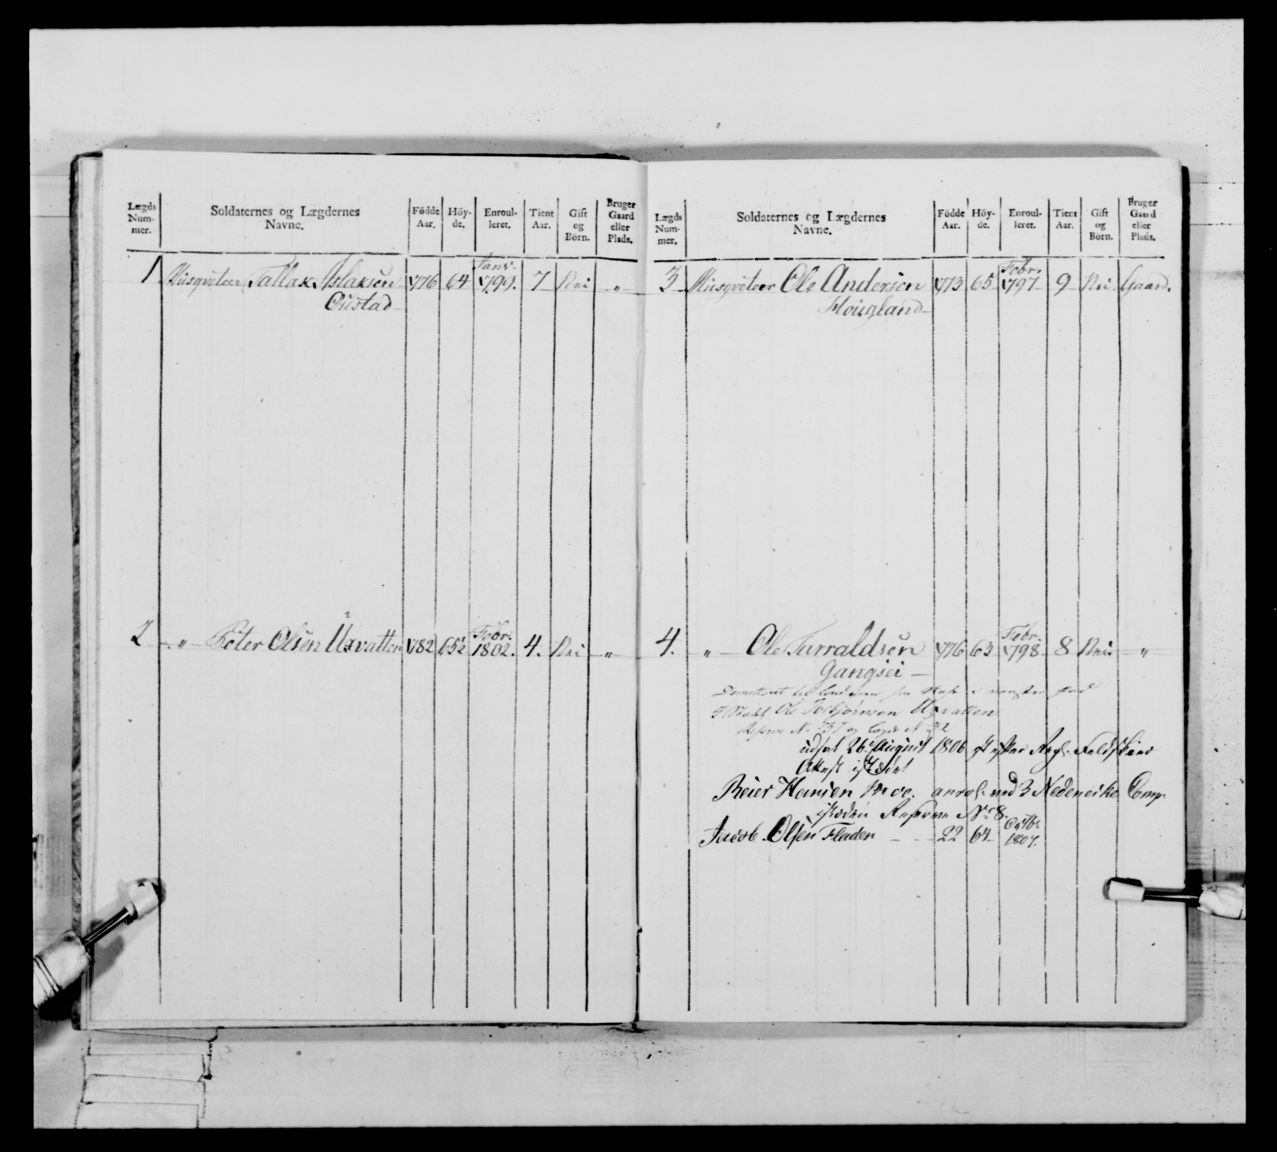 Lægds Num- mer. Soldaternes og Lægdernes Navne. Födde Aar. Höy- de. Enroul- leret. Tient Aar. Gift og Börn. Bruger Gaard eller Plads.
1 Musqveteer Tallak Aslaksen 776 64 Janv. 799. 7 Nei "
Oustad
2 " Peter Olsen Uxvatten 782 65½ Febr. 1802. 4. Nei "
Lægds Num- mer. Soldaternes og Lægdernes Navne. Födde Aar. Höy- de. Enroul- leret. Tient Aar. Gift og Börn. Bruger Gaard eller Plads.
3 Musqveteer Ole Andersen 773 65 Febr. 797 9 Nei Gaard.
Hougland
4. " Ole Tarraldsen 776 63 Febr. 798 8 Nei "
Gangsei
Ole Torbjörnsen Uxvatten
Reserve No
26 August 1806
Reier Hansen anrol. ved 3 Nedeneiske Comp.
Reserve No 8.
Jacob Olsen Fladen 22 64 1807.